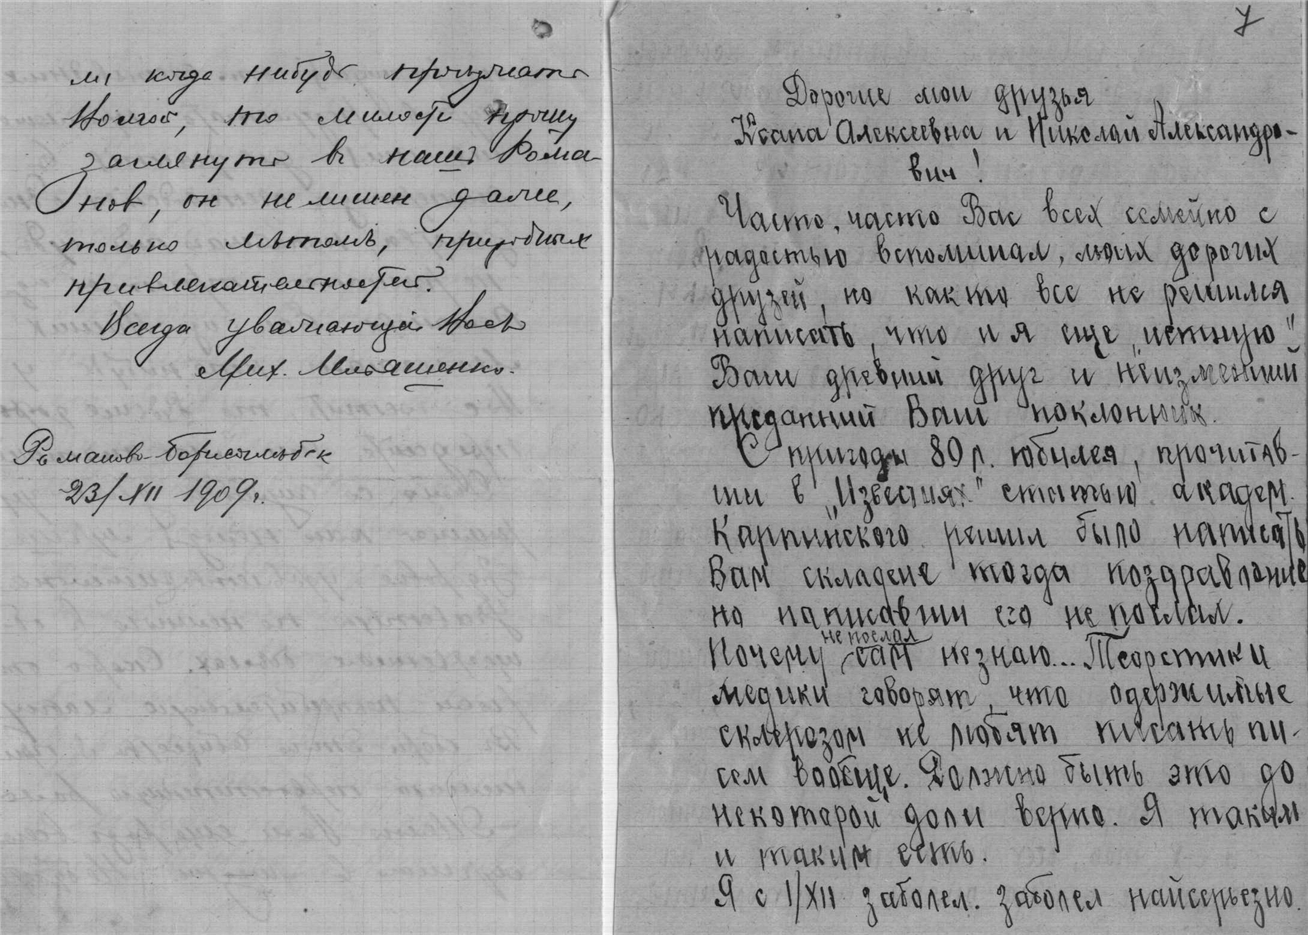 ли когда нибудь проезжать
Волгой, то милости прошу
заглянуть в наш Рома-
нов, он не лишен даже,
только летом, природных
привлекательностей.
Всегда уважающий Вас
Мих.
Романово-Борисоглебск
23/XII 1909г.
7
Дорогие мои друзья
Ксана Алексеевна и Николай Александро-
вич!
Часто, часто Вас всех семейно с
радостью вспоминал, моих дорогих
друзей, но както все не решился
написать, что и я еще "истную"
Ваш древний друг и неизменний
преданний Ваш поклонник.
С пригоды 80 л. юбилея, прочитав-
ши в "Известиях" статью академ.
Карпинского решил было написать
Вам складене тогда поздравление
но написавши его не послал.
Почему не послал сам незнаю... Теоретики
медики говорят, что одержимые
склерозом не любят писать пи-
сем вообще. Должно быть это до
некоторой доли верно. Я таким
и таким есть.
Я с 1/XII заболел. заболел найсерьезно.